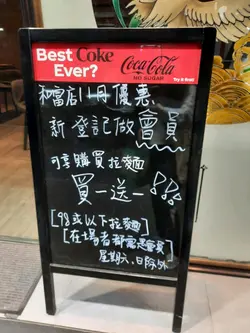 Best Coke
Ever?
Coca-Cola
NO SUGAR
Try it first!
和富店11月優惠
新登記做會員
可享購買拉麵
買一送一!!!
[98或以下拉麵]
[在場者都需是會員]
星期六、日除外